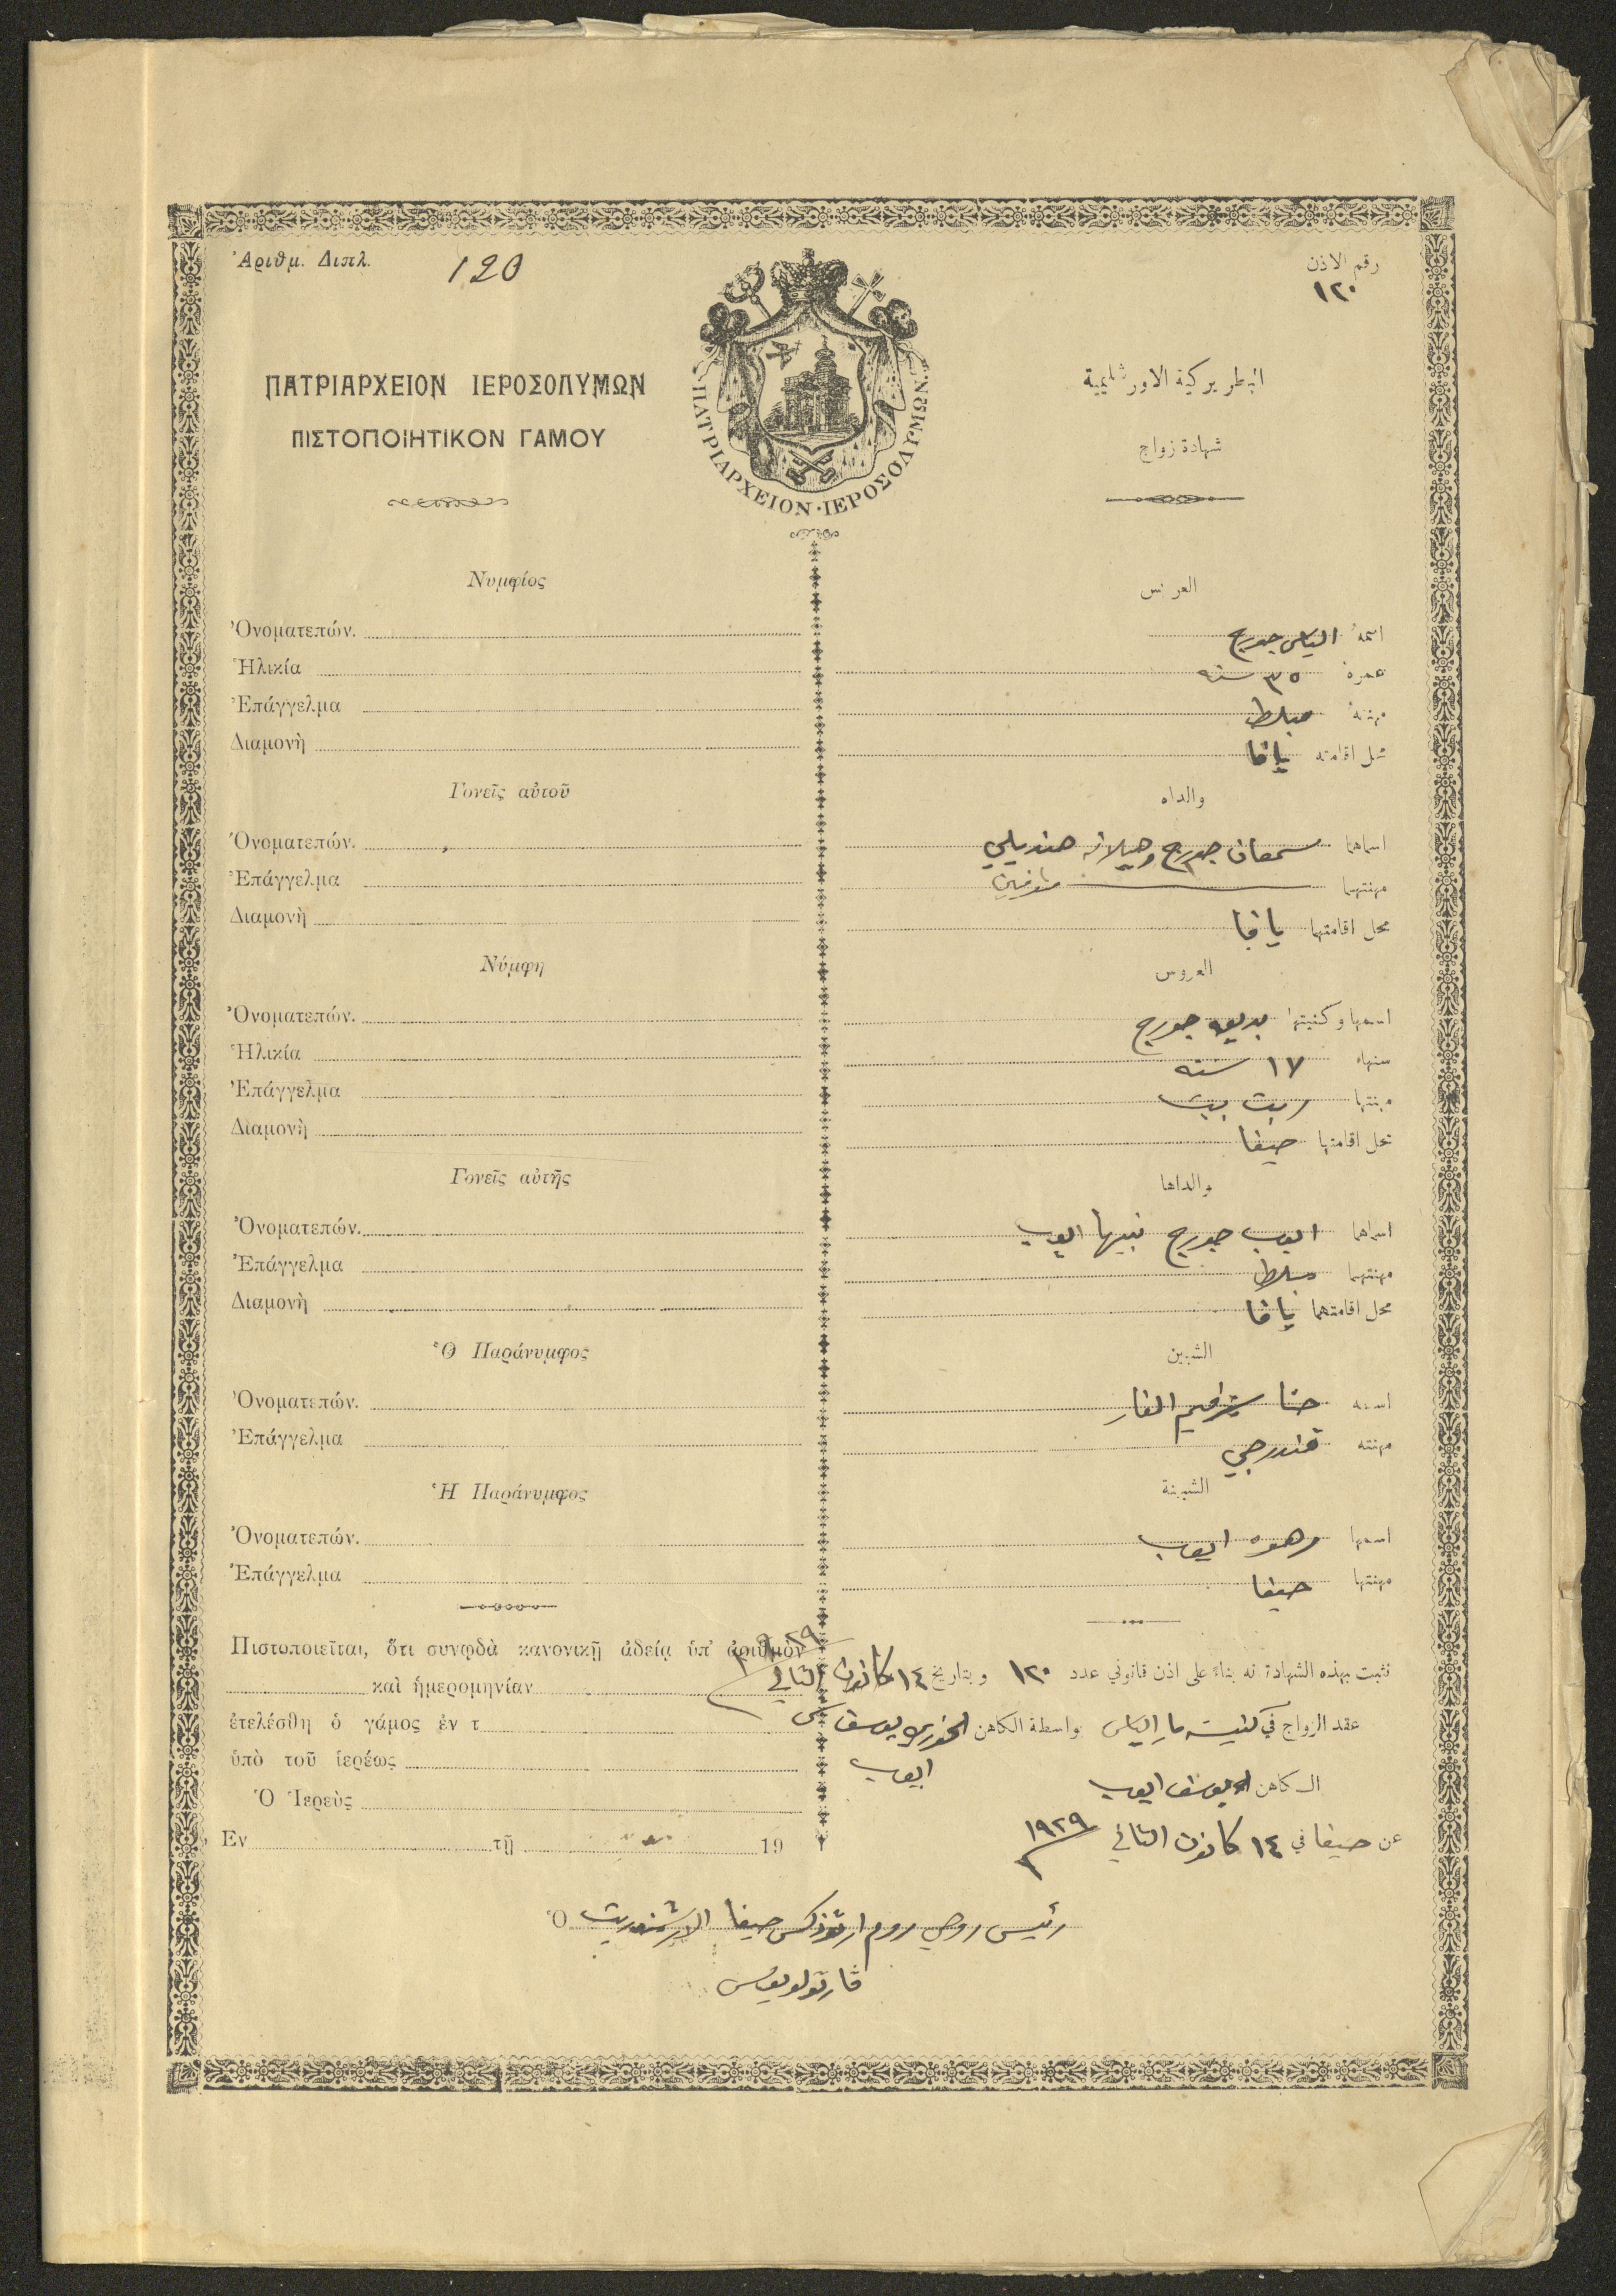 Ἀριθμ. Διπλ. 120
رقم الاذن
١٢٠
ΠΑΤΡΙΑΡΧΕΙΟΝ ΙΕΡΟΣΟΛΥΜΩΝ
ΠΙΣΤΟΠΟΙΗΤΙΚΟΝ ΓΑΜΟΥ
ΠΑΤΡΙΑΡΧΕΙΟΝ·ΙΕΡΟΣΟΛΥΜΩΝ
البطريركية الاورشليمية
شهادة زواج
Νυμφίος
Ὀνοματεπών.
Ἡλικία
Ἐπάγγελμα
Διαμονὴ
Γονεῖς αὐτοῦ
Ὀνοματεπών.
Ἐπάγγελμα
Διαμονὴ
Νύμφη
Ὀνοματεπών.
Ἡλικία
Ἐπάγγελμα
Διαμονὴ
Γονεῖς αὐτῆς
Ὀνοματεπών.
Ἐπάγγελμα
Διαμονὴ
Ὁ Παράνυμφος
Ὀνοματεπών.
Ἐπάγγελμα
Ἡ Παράνυμφος
Ὀνοματεπών.
Ἐπάγγελμα
Πιστοποιεῖται, ὅτι συνῳδὰ κανονικῇ ἀδείᾳ ὑπ' ἀριθμὸν
καὶ ἡμερομηνίαν
ἐτελέσθη ὁ γάμος ἐν τ
ὑπὸ τοῦ ἱερέως
Ὁ Ἱερεὺς
Εν τῇ 19
العريس
اسمهُ الياس جورج
عمرهُ ٣٥ سنه
مهنتهُ مبلط
محل اقامته يافا
والداه
اسماهما سمعان جورج وهيلانه
مهنتهما متوفيين
محل اقامتهما يافا
العروس
اسمها وكنيتها بديعه جورج
سنها ١٧ سنه
مهنتها ربت بيت
محل اقامتها حيفا
والداها
اسماهما ايوب جورج نبيها ايوب
مهنتهما مبلط
محل اقامتهما يافا
الشبين
اسمه حنا الفار
مهنته قندرجي
الشبينة
اسمها زهوه ايوب
مهنتها حيفا
نثبت بهذه الشهادة انه بناءً على اذن قانوني عدد ١٢٠ وبتاريخ ١٤ كانون الثاني ١٩٢٩
عقد الزواج في كنيسة مار الياس بواسطة الكاهن الخوري يوسف
ايوب
الكاهن يوسف ايوب
عن حيفا في ١٤ كانون الثاني ١٩٢٩
Ὁ رئيس روحي روم ارثوذكس حيفا الارشمندريت